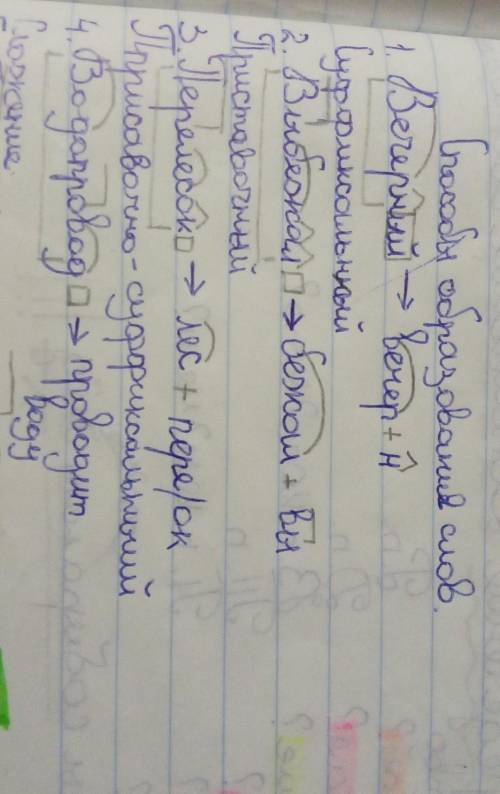 Способы образования слов.
1. Вечерний → вечер + н
Суффиксальный
2. Выбежал → бежал + вы
Приставочный
3. Перелесок → лес + пере/ок
Присавочно-суффиксальный
4. Водопровод → проводит воду
Сложение.